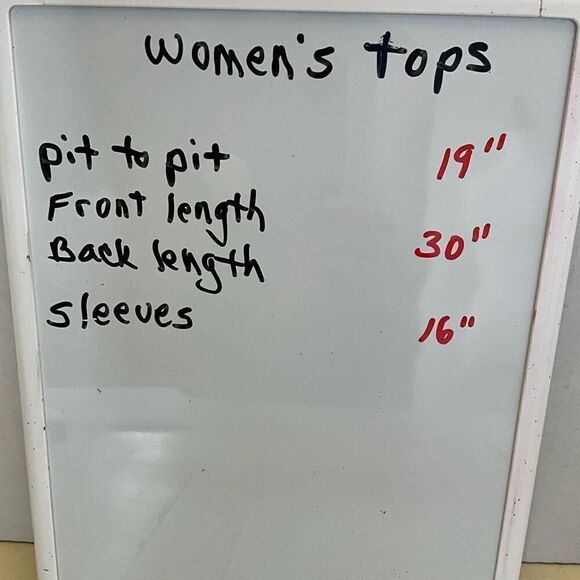 women's tops
pit to pit 19"
Front length
Back length 30"
sleeves 16"